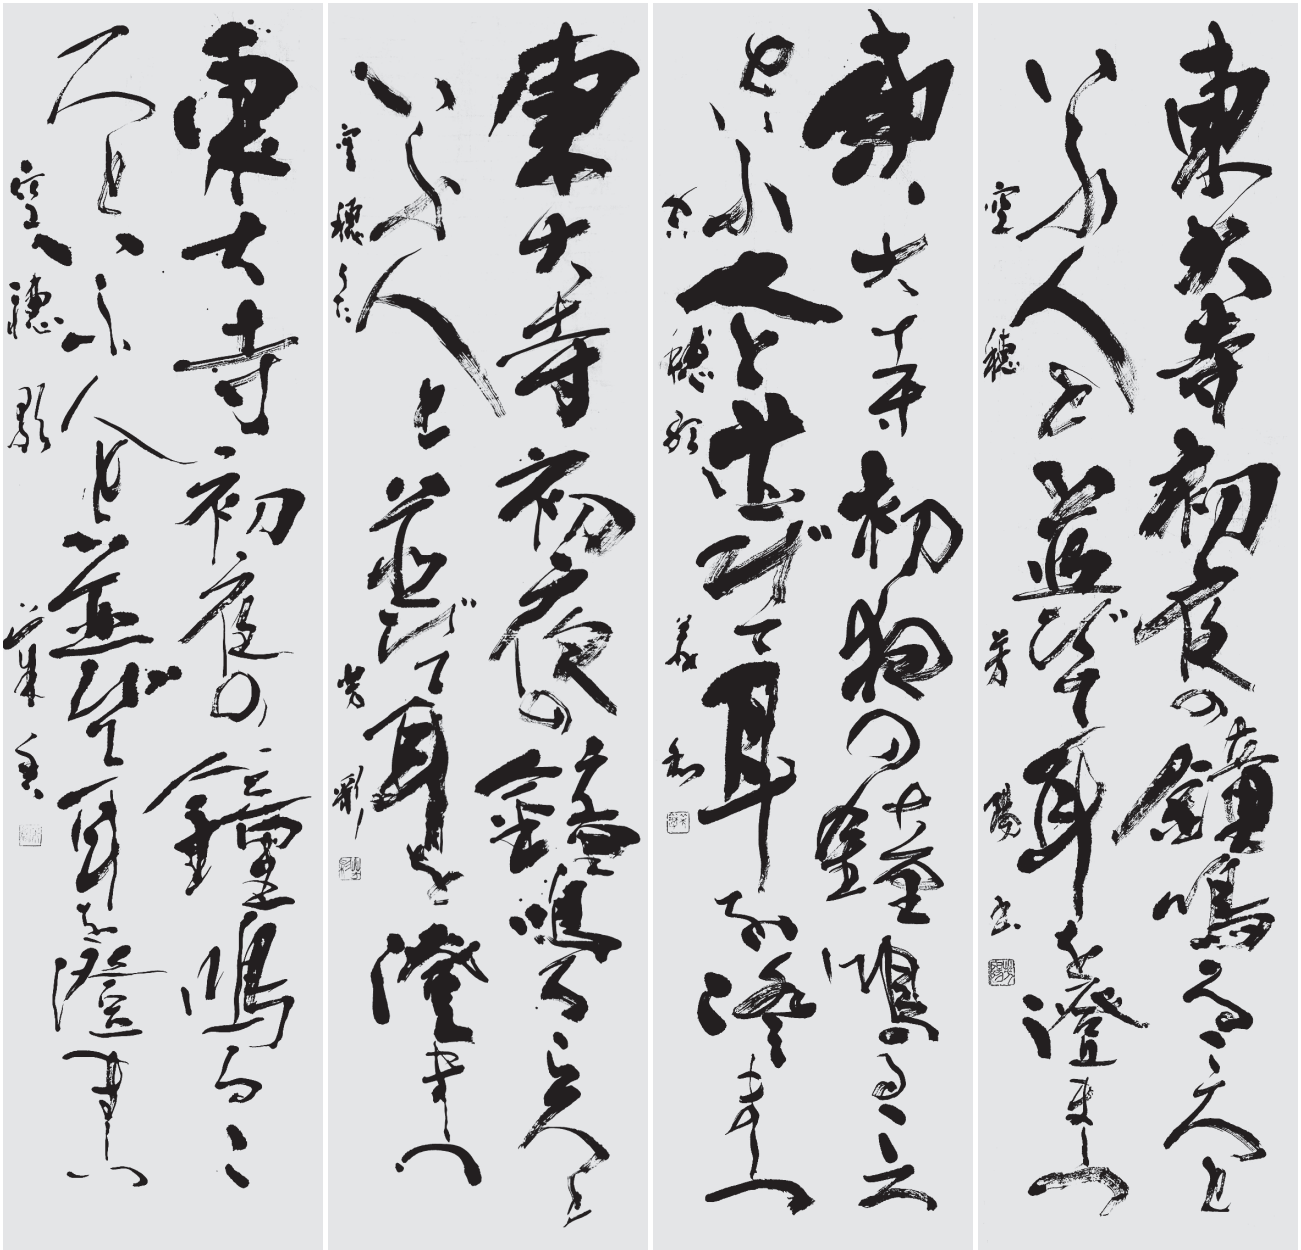 東大寺初夜の鐘鳴る人と
いふ人と並びて耳を澄ましつ
空穂 芳陽書
東大寺初夜の鐘鳴る
といふ人と並びて耳を澄ましつ
空穂歌 美和
東大寺初夜の鐘鳴る人と
いふ人と並びて耳を澄ましつ
空穂うた 芳彩
東大寺初夜の鐘鳴る
人といふ人と並びて耳を澄ましつ
空穂歌